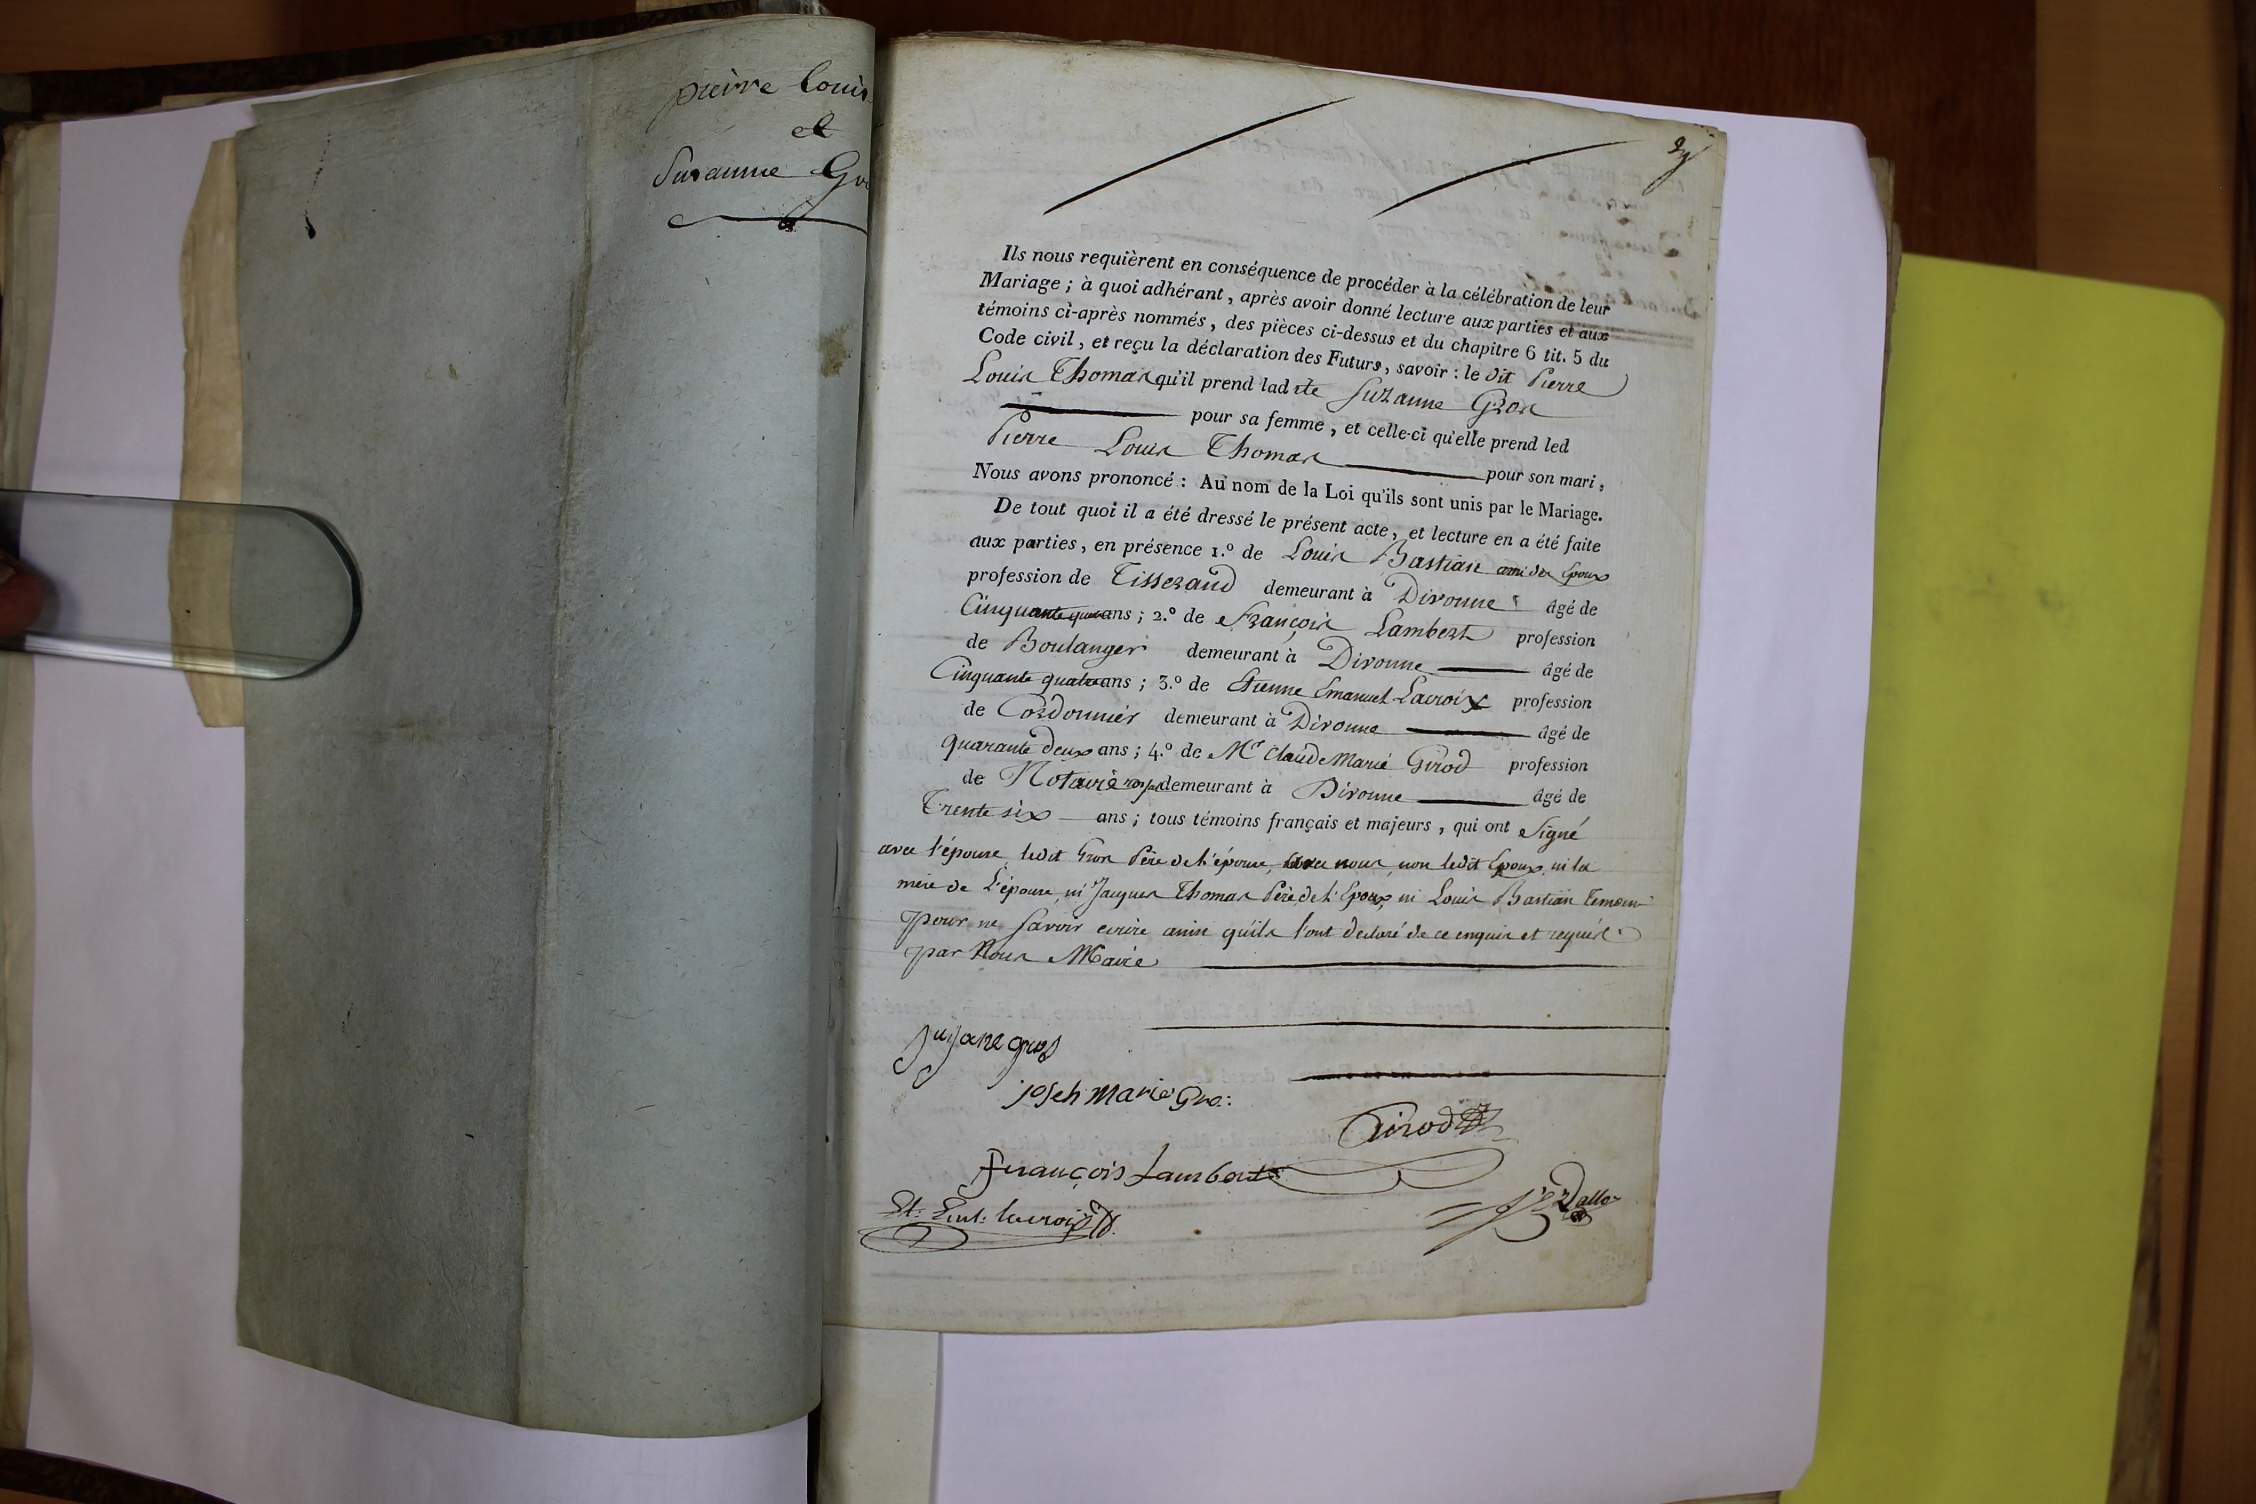 pierre Louis
et
Suzanne Gro
Ils nous requièrent en conséquence de procéder à la célébration de leur
Mariage ; à quoi adhérant, après avoir donné lecture aux parties et aux
témoins ci-après nommés, des pièces ci-dessus et du chapitre 6 tit. 5 du
Code civil, et reçu la déclaration des Futurs, savoir : le dit Pierre
Louis Thomas qu'il prend lad ite Suzanne Gros
pour sa femme, et celle-ci qu'elle prend led
Pierre Louis Thomas pour son mari,
Nous avons prononcé : Au nom de la Loi qu'ils sont unis par le Mariage.
De tout quoi il a été dressé le présent acte, et lecture en a été faite
aux parties, en présence 1.º de Louis Bastian ami des Epoux
profession de Tisserand demeurant à Divonne âgé de
Cinquante ans ; 2.º de François Lambert profession
de Boulanger demeurant à Divonne âgé de
Cinquante quatre ans ; 3.º de Etienne Emanuel Lacroix profession
de Cordonnier demeurant à Divonne âgé de
quarante deux ans ; 4.º de Mr Claude Marie Girod profession
de Notaire demeurant à Divonne âgé de
Trente six ans ; tous témoins français et majeurs, qui ont Signé
avec l'épouse, ledit Gros Père de l'épouse, avec nous, non ledit Epoux, ni la
mère de L'épouse, ni Jacques Thomas Père de l'Epoux, ni Louis Bastian Temoin
pour ne Savoir ecrire ainsi qu'ils l'ont declaré de ce enquis et requis
par Nous Maire
Suzane gros
joseh marie Gro:
Girod
François Lambert
Et: Eml: lacroix